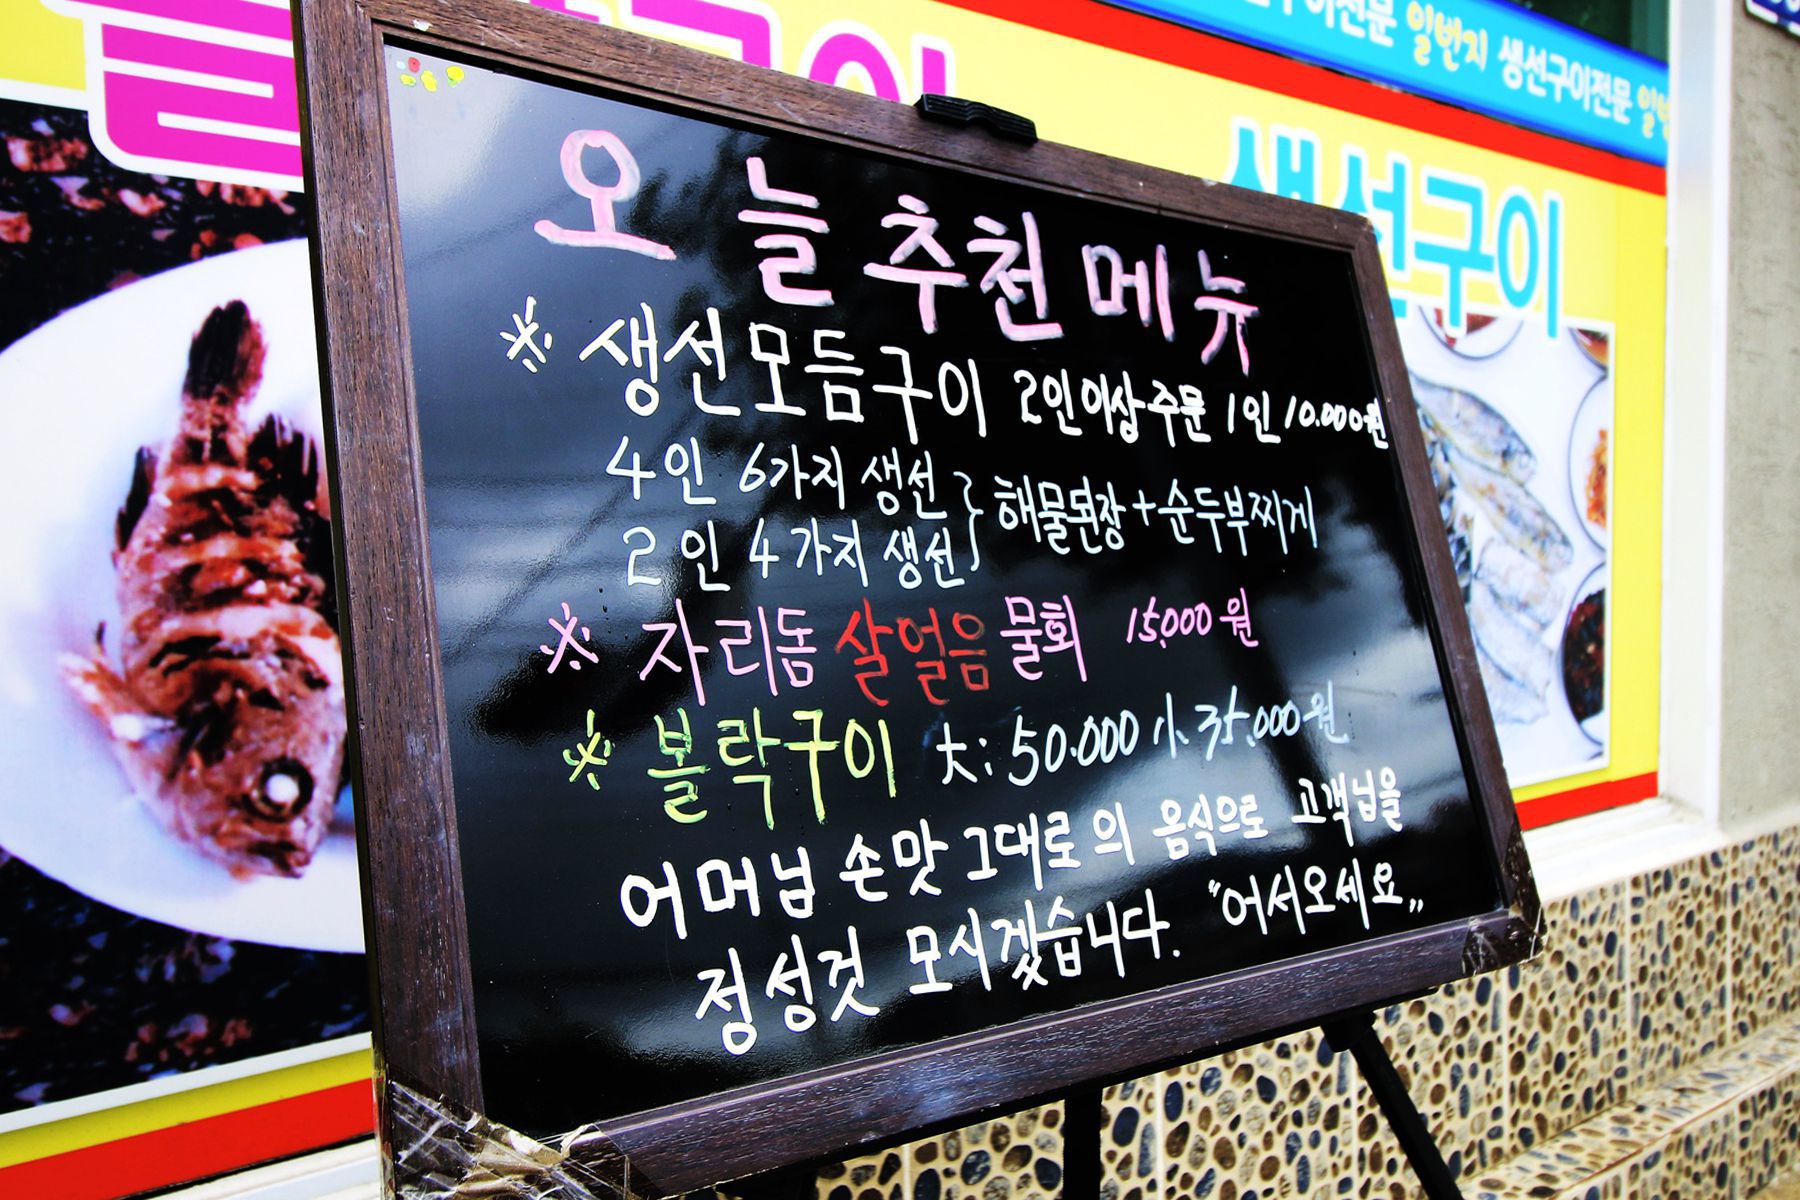 구이전문 일번지 생선구이전문
생선구이
오늘 추천 메뉴
※ 생선모듬구이 2인이상주문 1인 10.000원
4인 6가지 생선
2인 4가지 생선 } 해물된장 + 순두부찌게
※ 자리돔 살얼음 물회 15,000원
※ 볼락구이 大: 50.000 小. 35.000원
어머님 손맛 그대로의 음식으로 고객님을
정성것 모시겠습니다. "어서오세요"